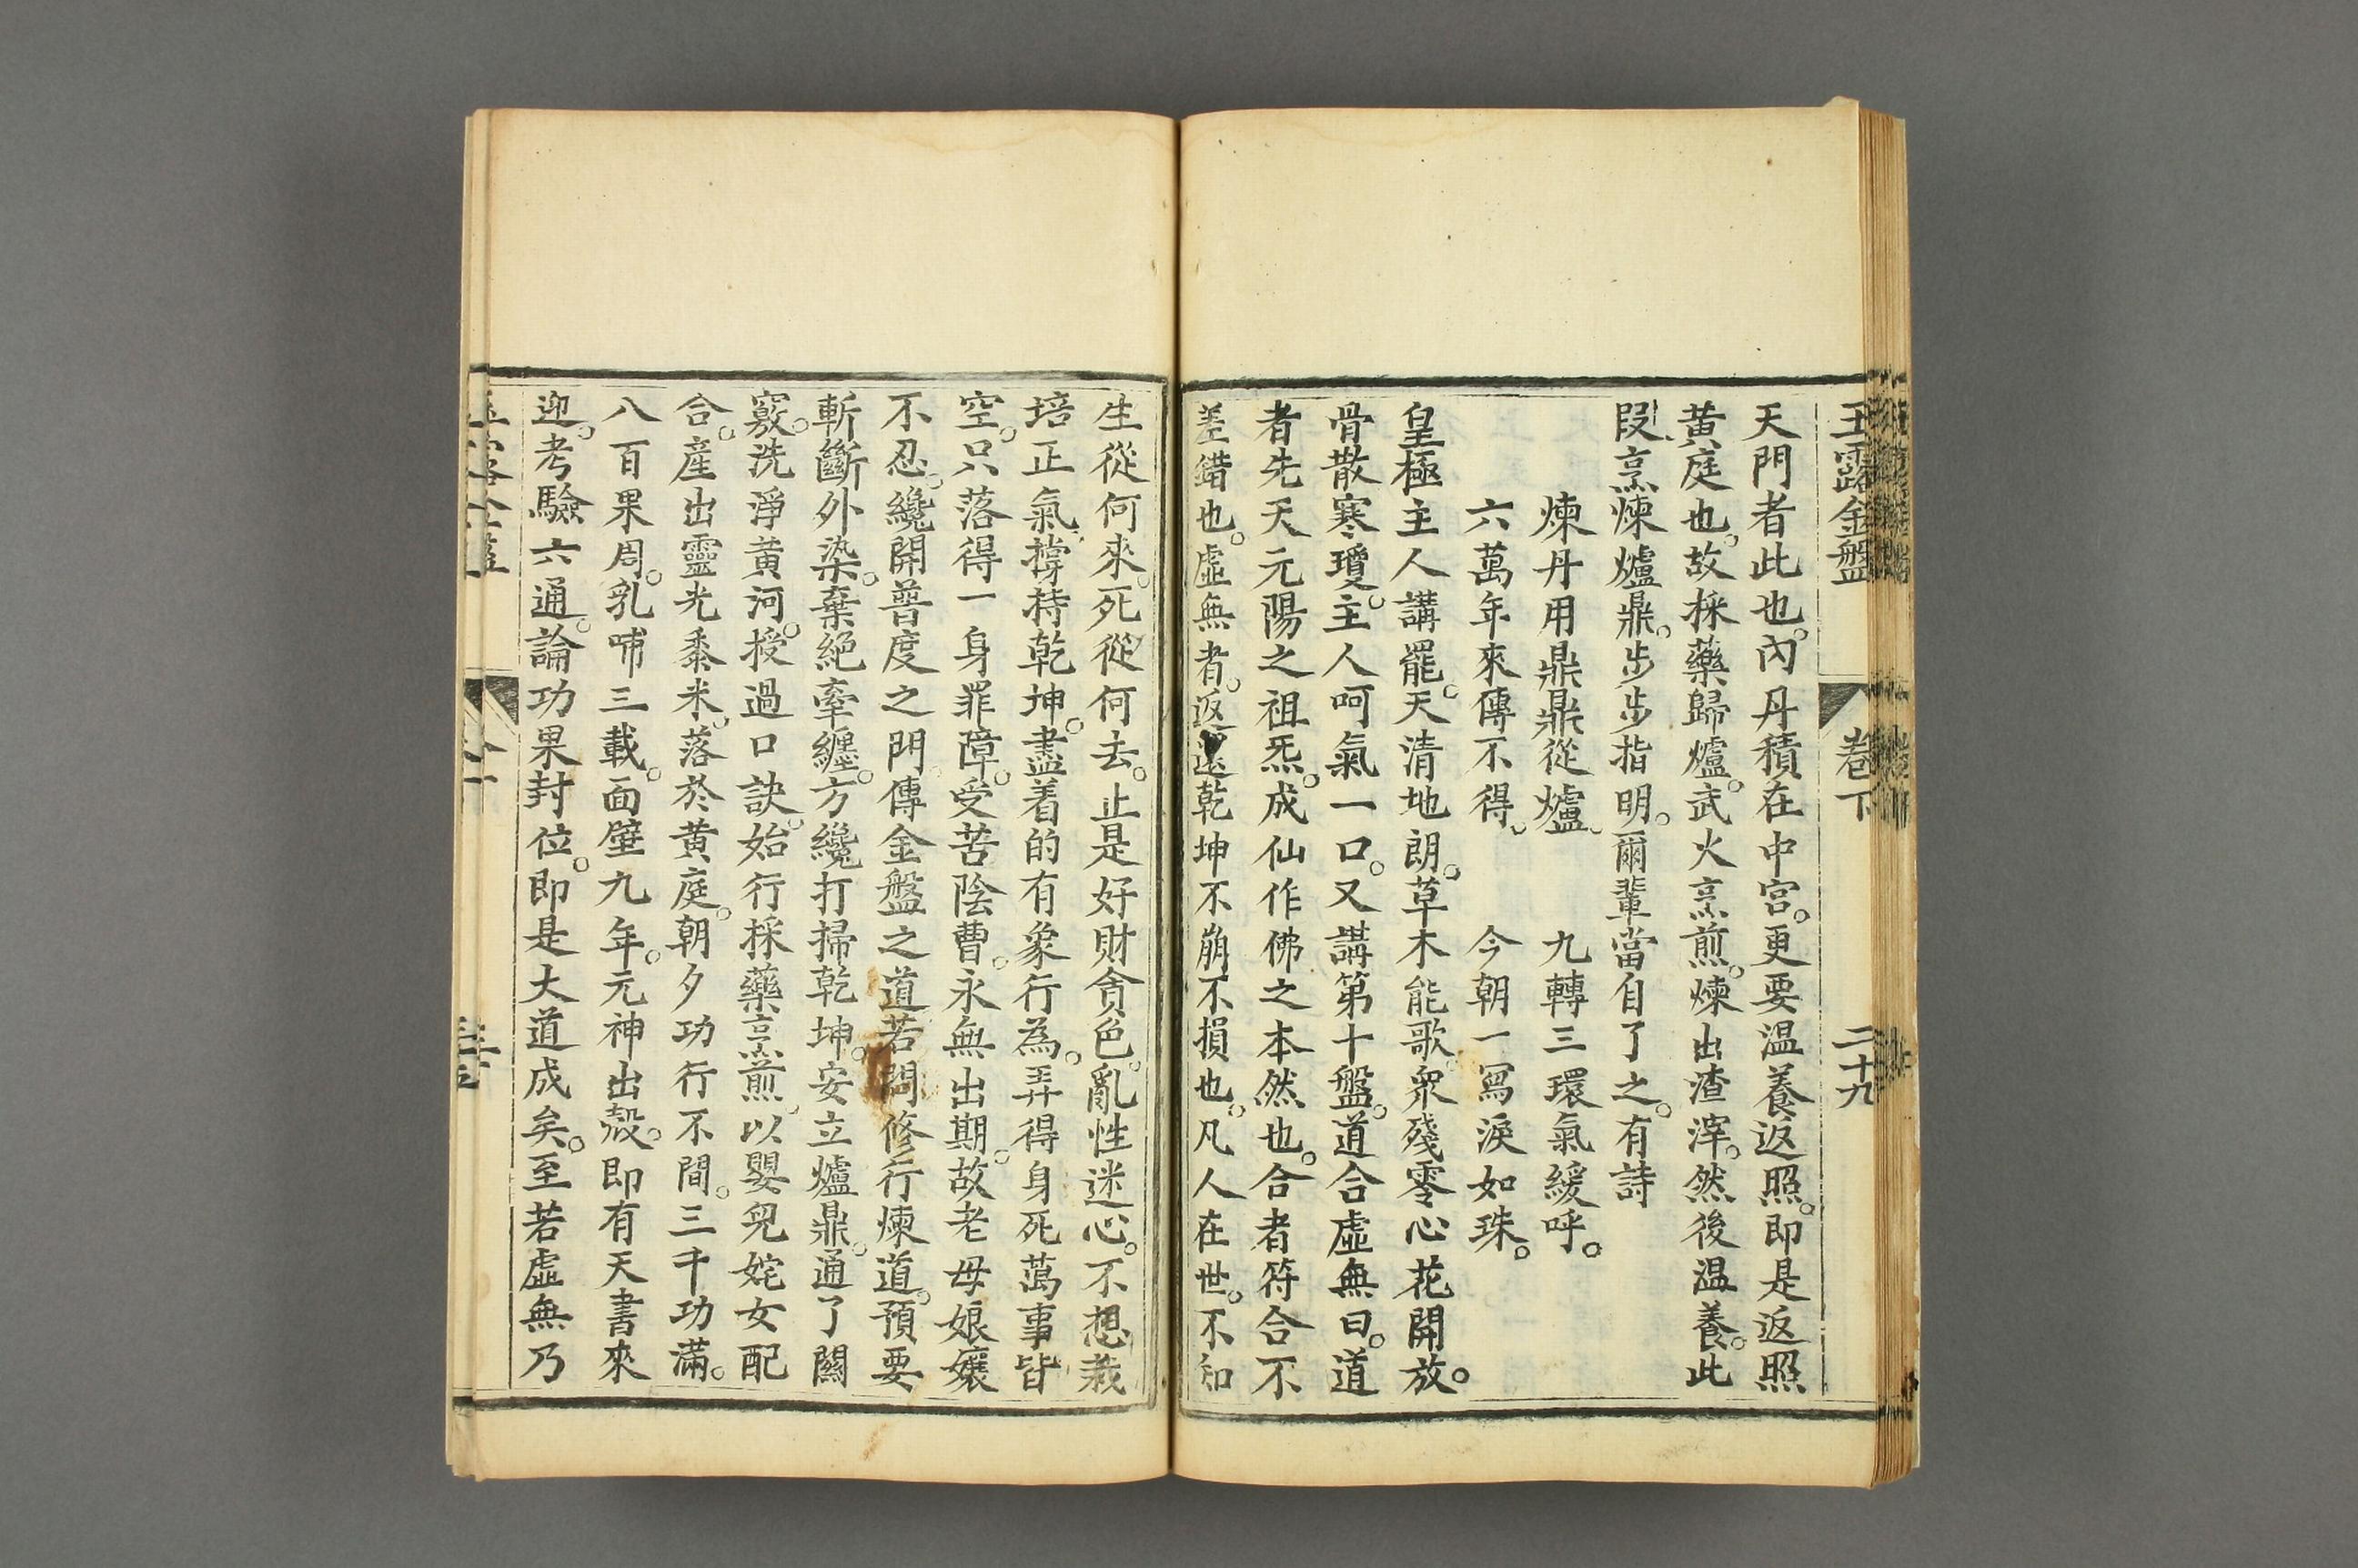 玉露金盤 卷下 二十九
天門者此也。內丹積在中宮。更要温養返照。即是返照
黄庭也。故採藥歸爐。武火烹煎。煉出渣滓。然後温養。此
段烹煉爐鼎。步步指明。爾輩當自了之。有詩
煉丹用鼎鼎從爐。九轉三環氣緩呼。
六萬年來傳不得。今朝一寫淚如珠。
皇極主人講罷。天清地朗。草木能歌。衆殘零心花開放。
骨散寒瓊。主人呵氣一口。又講第十盤。道合虛無曰。道
者先天元陽之祖炁。成仙作佛之本然也。合者符合不
差錯也。虛無者。返還乾坤不崩不損也。凡人在世。不知
生從何來。死從何去。止是好財貪色。亂性迷心。不想栽
培正氣。撐持乾坤。盡着的有象行為。弄得身死萬事皆
空。只落得一身罪障。受苦陰曹。永無出期。故老母娘孃
不忍。纔開普度之門。傳金盤之道。若問修行煉道。預要
斬斷外染。棄絕牽纏。方纔打掃乾坤。安立爐鼎。通了關
竅。洗淨黄河。授過口訣。始行採藥烹煎。以嬰兒姹女配
合。産出靈光黍米。落於黄庭。朝夕功行不間。三千功滿。
八百果周。乳哺三載。面壁九年。元神出殼。即有天書來
迎。考驗六通。論功果封位。即是大道成矣。至若虛無乃